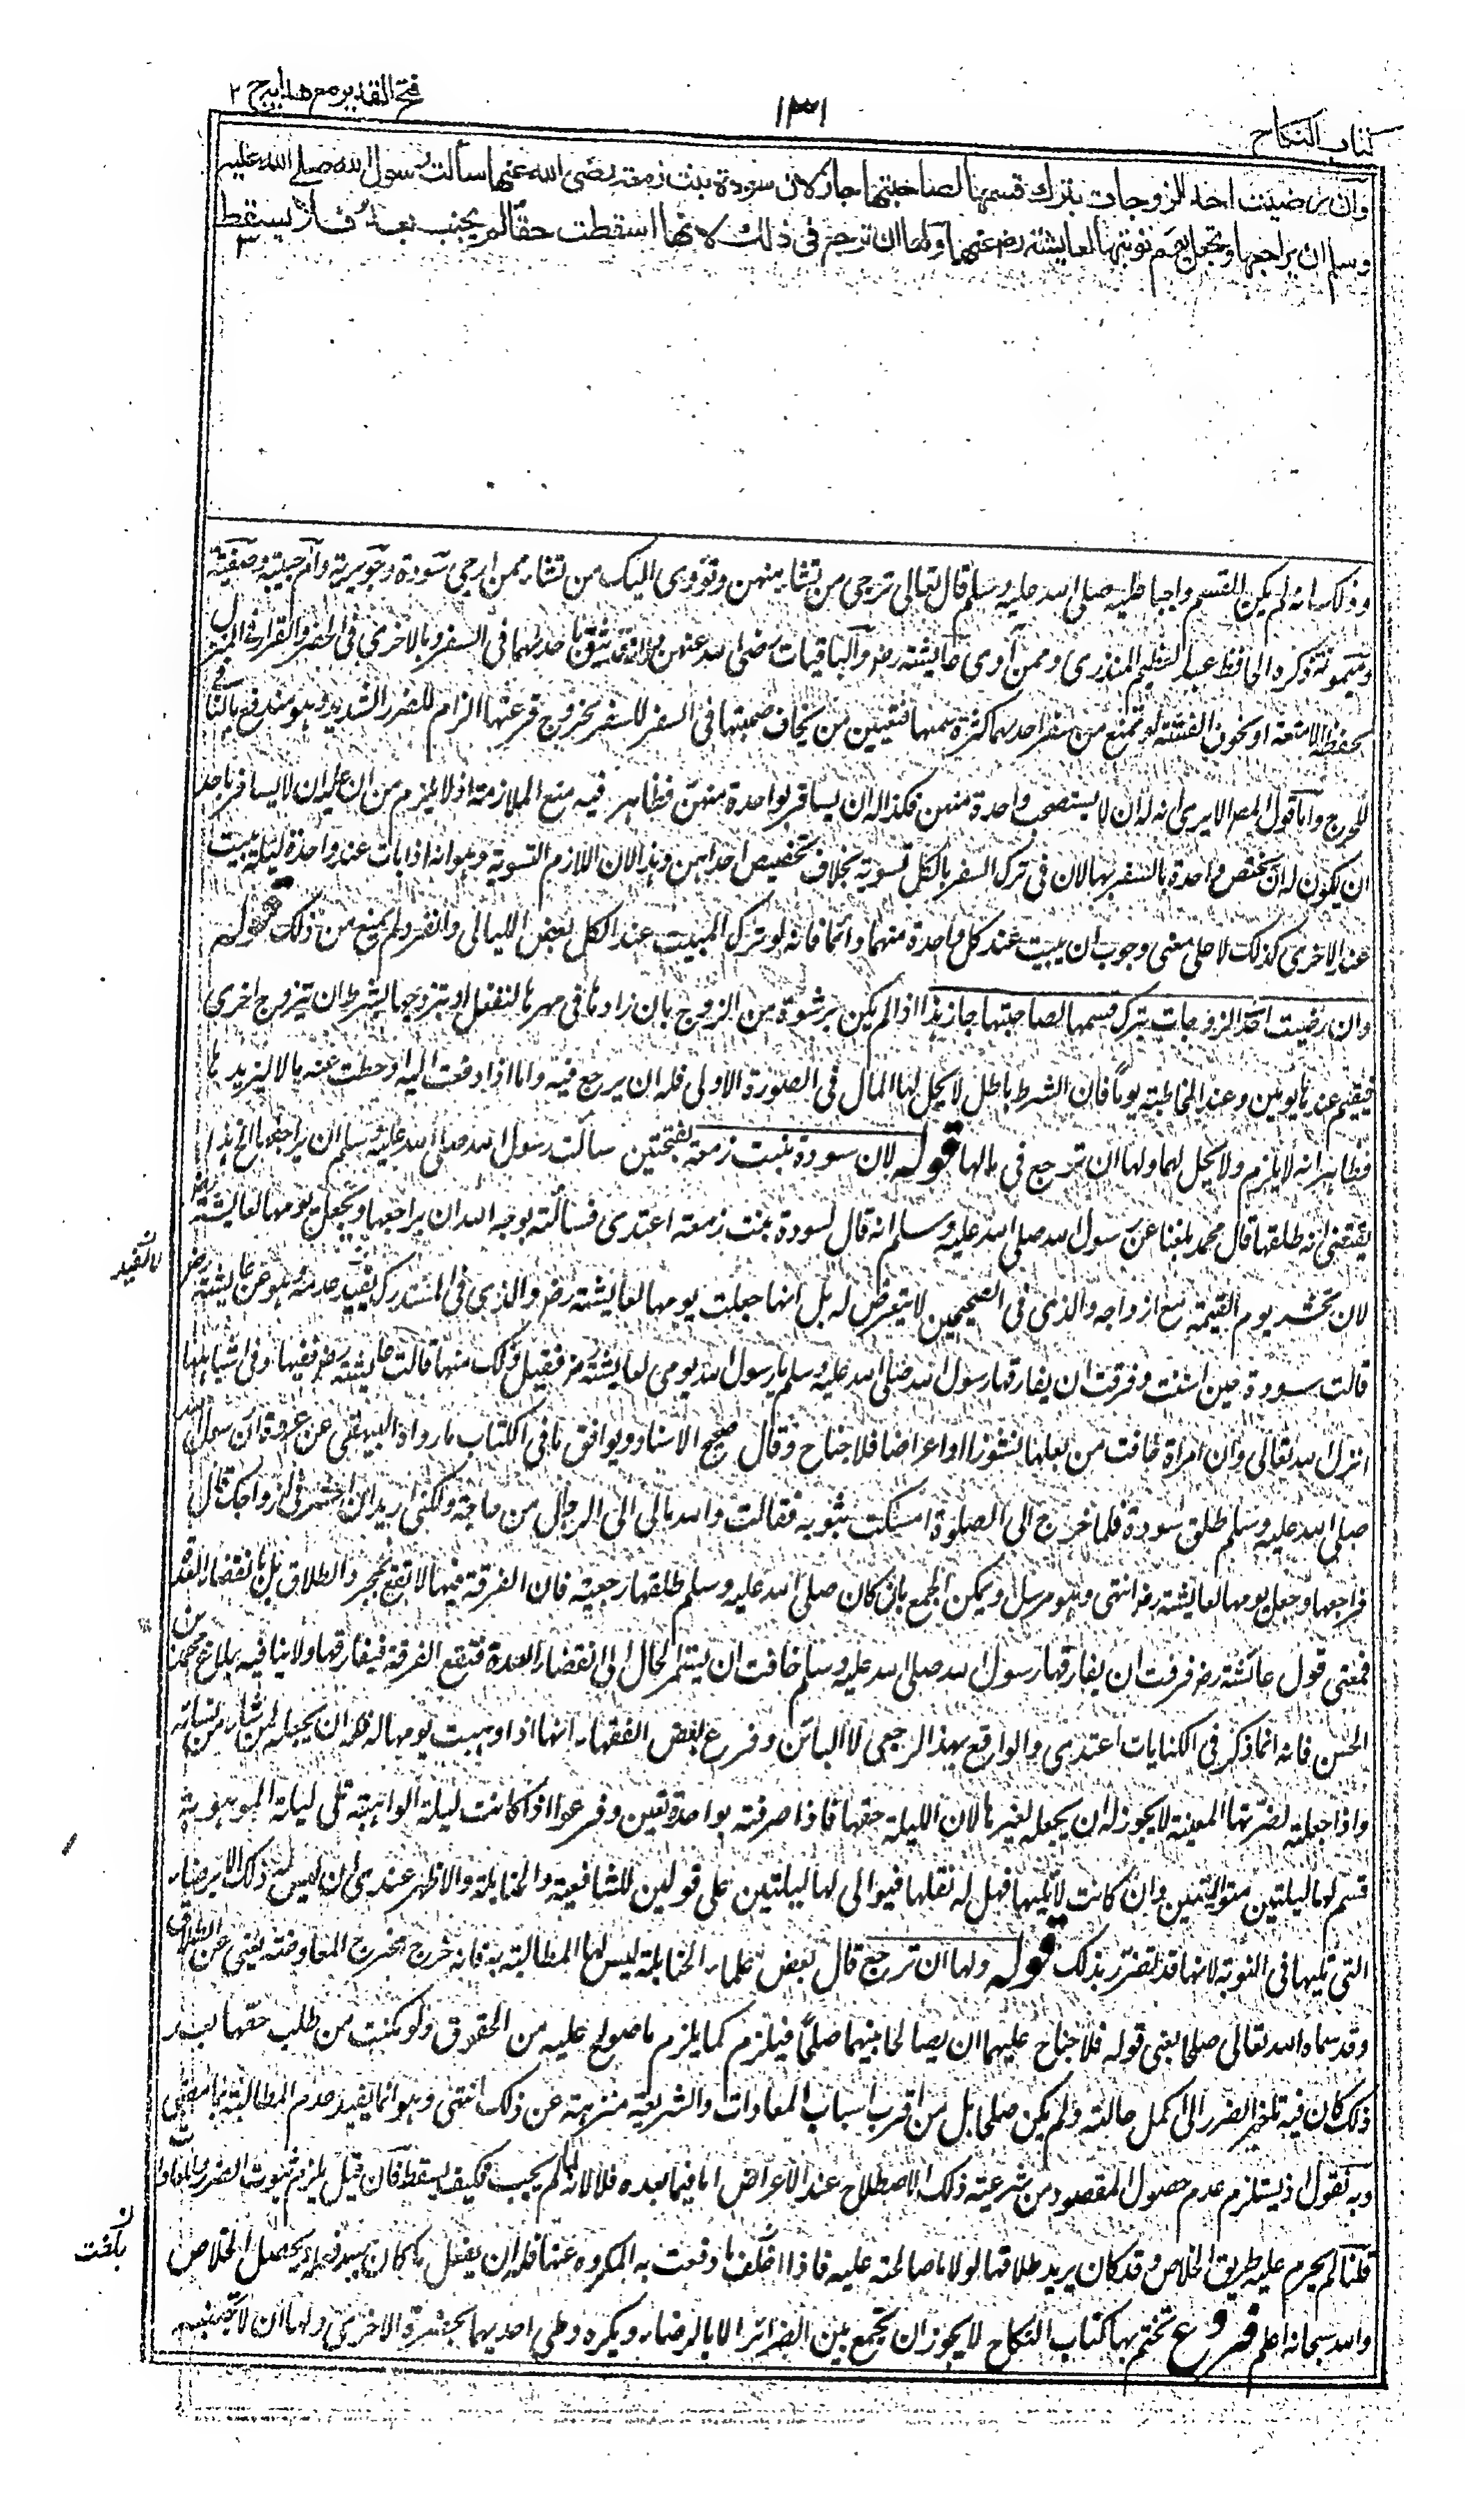 كتاب النكاح
١٣١
فتح القدير مع هدايه ج ٢
وان رضيت احد الزوجات بترك قسمها لصاحبتها جاز لان سودة بنت زمعة رضى الله عنها سألت رسول الله صلے الله عليه
وسلم ان يراجعها وتجعل يوم نوبتها لعايشة رض عنهما ولها ان ترجع فى ذلك لانها اسقطت حقا لم يجب بعد فلا يسقط
وذلك انه لم يكن القسم واجبا عليه صلى الله عليه وسلم قال تعالى ترجى من تشاء منهن وتؤوى اليك من تشاء ممن ارجى سودة وجويرية وام حبيبة وصفية
وميمونة ذكره الحافظ عبد العظيم المنذرى وممن آوى عايشة رض والباقيات رضى الله عنهن ولانه قد يثق باحدهما فى السفر وبالاخرى فى الحضر والقرار فى المنزل
لحفظ الامتعة او لخوف الفتنة او تمنع من سفر احدهما كثرة سمنها فتعيين من يخاف صحبتها فى السفر للسفر بخروج قرعتها الزام للضرر الشديد وهو مندفع بالنافى
للحرج واما قول المص الا يرى انه له ان لا يستصحب واحدة منهن فكذا له ان يسافر بواحدة منهن فظاهر فيه منع الملازمة اذ لا يلزم من ان عليه ان لا يسافر باحد
ان يكون له ان يختص واحدة بالسفر بها لان فى ترك السفر بالكل تسوية بخلاف تخصيص احداهن وهذا لان اللازم التسوية وهو انه اذا بات عند واحدة ليلة يبيت
عند الاخرى كذلك لا على معنى وجوب ان يبيت عند كل واحدة منهما دائما فانه لو ترك المبيت عند الكل بعض الليالى وانفرد لم يمنع من ذلك قوله
وان رضيت احد الزوجات بترك قسمها لصاحبتها جاز هذا اذا لم يكن برشوة من الزوج بان زادها فى مهرها لتفعل او تزوجها بشرط ان يتزوج اخرى
فيقيم عندها يومين وعند المخاطبة يوما فان الشرط باطل لا يحل لها المال فى الصورة الاولى فله ان يرجع فيه واما اذا دفعت اليه او حطت عنه مالا ليزيدها
فظاهر انه لا يلزم ولا يحل لهما ولها ان ترجع فى مالها قوله لان سودة بنت زمعة بفتحتين سألت رسول الله صلى الله عليه وسلم ان يراجعها الخ هذا
يقتضى انه طلقها قال محمد بلغنا عن رسول الله صلى الله عليه وسلم انه قال لسودة بنت زمعة اعتدى فسألته بوجه الله ان يراجعها ويجعل يومها لعايشة رض
لان تحشر يوم القيمة مع ازواجه والذى فى الصحيحين لا يتعرض له بل انها جعلت يومها لعايشة رض والذى فى المستدرك يفيد عدمه وهو عن عايشة رض
قالت سودة حين اسنت وفرقت ان يفارقها رسول الله صلى الله عليه وسلم يا رسول الله يومى لعايشة رض فقبل ذلك منها قالت عايشة رض ففيها وفى اشباهها
انزل الله تعالى وان امراة خافت من بعلها نشوزا او اعراضا فلا جناح وقال صحيح الاسناد ويوافق ما فى الكتاب ما رواه البيهقى عن عروة ان رسول الله
صلى الله عليه وسلم طلق سودة فلما خرج الى الصلوة امسكت بثوبه فقالت والله مالى الى الرجال من حاجة ولكنى اريد ان احشر فى ازواجك قال
فراجعها وجعل يومها لعايشة رض انتهى وهو مرسل ويمكن الجمع بانه كان صلى الله عليه وسلم طلقها رجعية فان الفرقة فيها لا تقع بمجرد الطلاق بل بانقضاء العدة
فمعنى قول عائشة رض فرقت ان يفارقها رسول الله صلى الله عليه وسلم خافت ان يستمر الحال الى انقضاء العدة فتقع الفرقة فيفارقها ولا ينافيه بلاغ محمد بن
الحسن فانه انما ذكر فى الكنايات اعتدى والواقع بهذا الرجعى لا البائن وفرع بعض الفقهاء انها اذا وهبت يومها له فله ان يجعله لمن شاء من نسائه
واذا جعلته لضرتها المعينة لا يجوز له ان يجعله لغيرها لان الليلة حقها فاذا صرفته بواحدة تعين وفرعوا اذا كانت ليلة الواهبة تلى ليلة الموهوبة
قسم لها ليلتين متواليتين وان كانت لا تليها فهل له نقلها فيوالى لها ليلتين على قولين للشافعية والحنابلة والاظهر عندى ان ليس له ذلك الا برضاء
التى تليها فى النوبة لانها قد تتضرر بذلك قوله ولها ان ترجع قال بعض علماء الحنابلة ليس لها المطالبة به فانه خرج مخرج المعاوضة يعنى عن الطلاق
وقد سماه الله تعالى صلحا يعنى قوله فلا جناح عليهما ان يصالحا بينهما صلحا فيلزم كما يلزم ما صولح عليه من الحقوق ولو مكنت من طلب حقها بعد
ذلك كان فيه تاخير الضرر الى اكمل حالته ولم يكن صلحا بل من اقرب اسباب المعادات والشريعة منزهة عن ذلك انتهى وهو انما يفيد عدم المطالبة بما مضى
وبه نقول اذ يستلزم عدم حصول المقصود من شرعية ذلك الاصطلاح عند الاعراض اما فيما بعده فلا لانه لما لم يجب فكيف يسقط فان قيل يلزم ثبوت الضرر
قلنا لم يحرم عليه طريق الخلاص وقد كان يريد طلاقها لولا ما صالحته عليه فاذا اخلف ما دفعت به المكروه عنها فله ان يفعل ما كان يحصل الخلاص
والله سبحانه اعلم فروع نختم بها كتاب النكاح لا يجوز ان يجمع بين الضرائر الا بالرضاء ويكره وطى احديهما بحضرة الاخرى ولها ان لا تجيبه